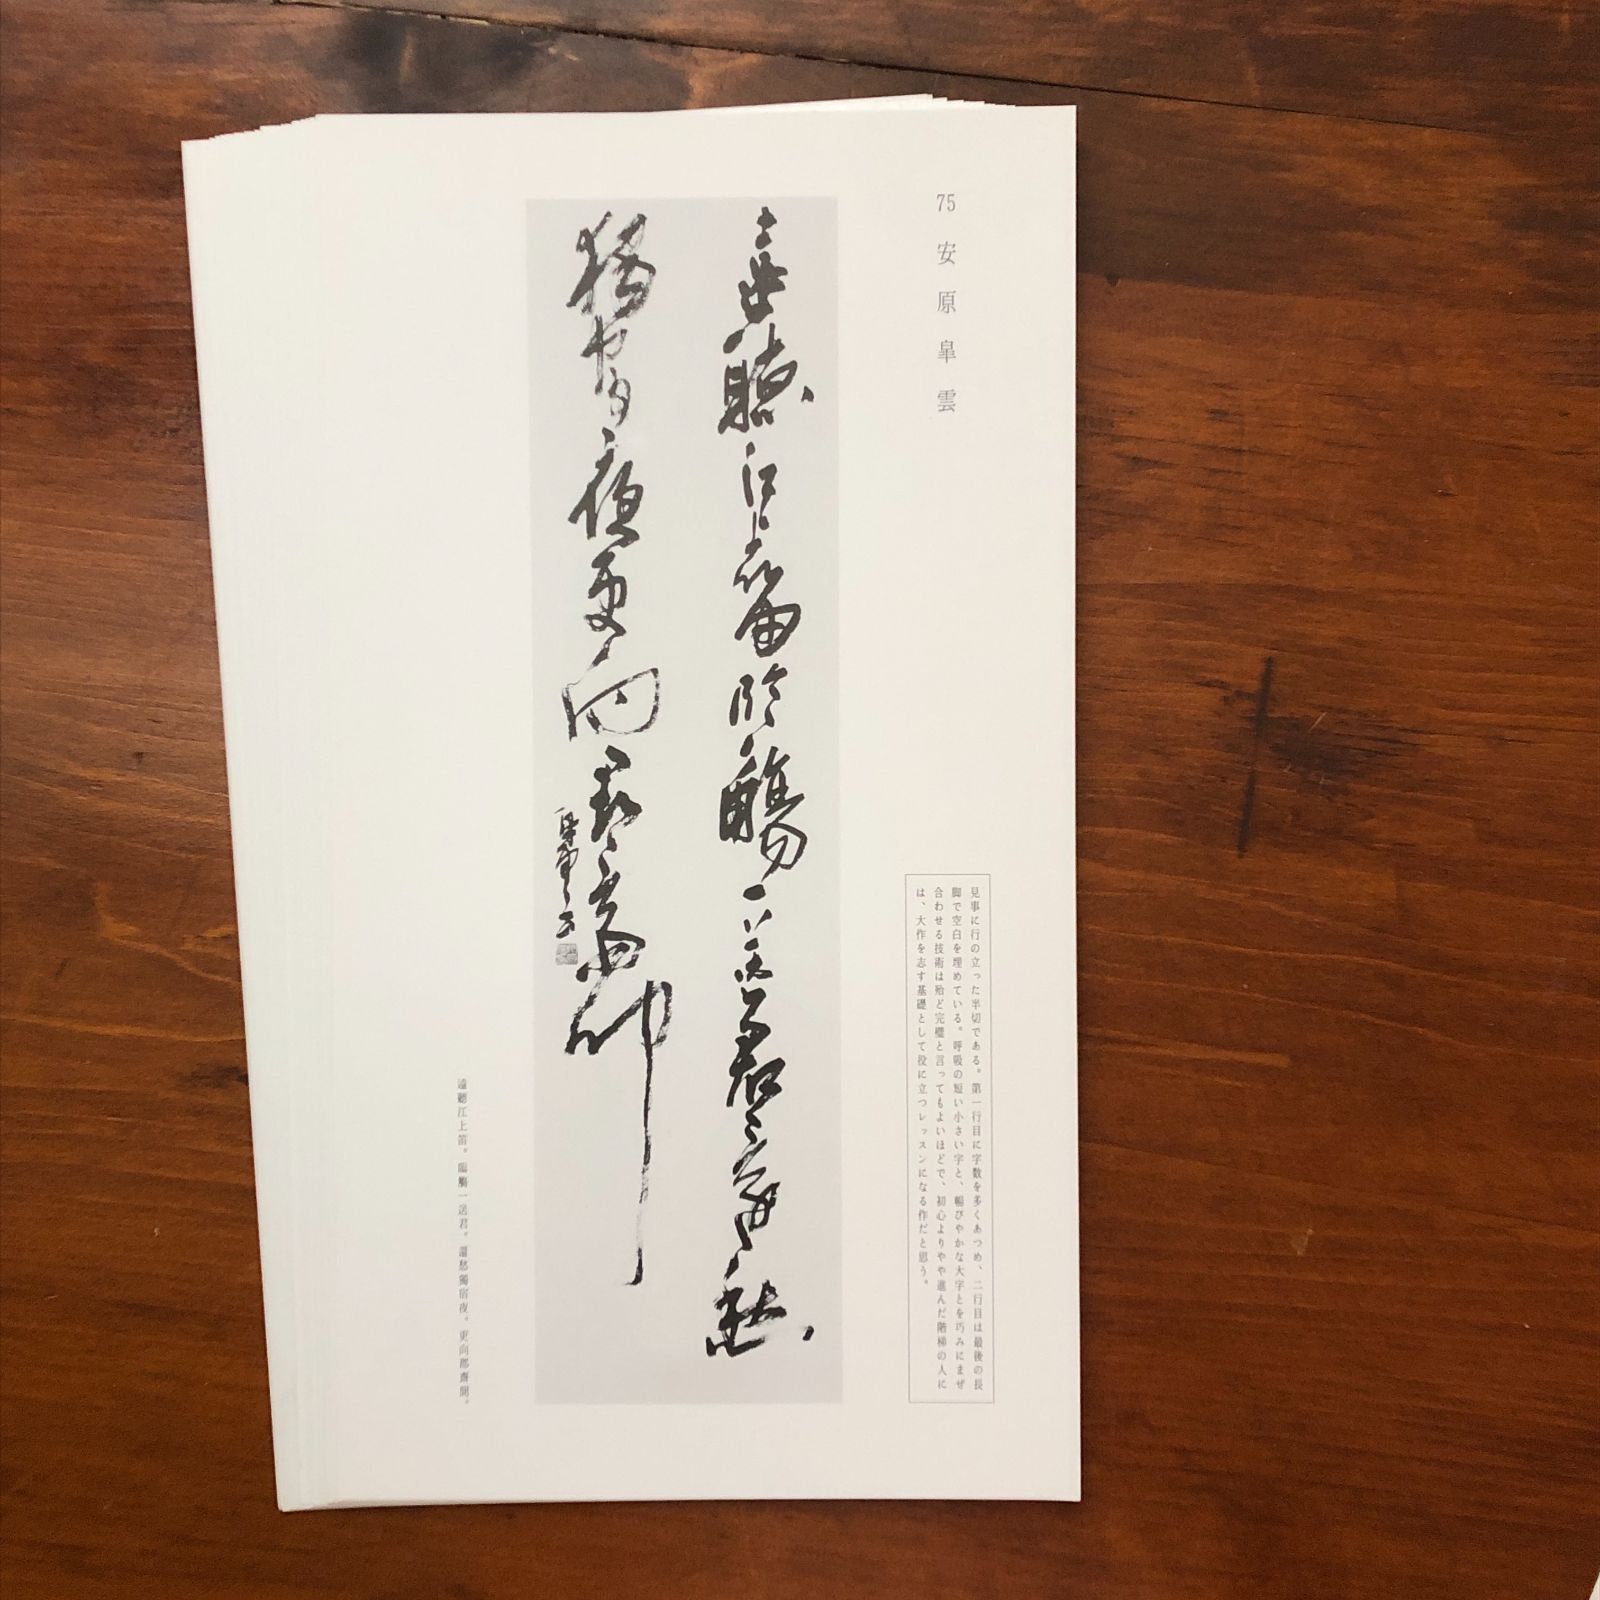 75 安原皐雲
見事に行の立った半切である。第一行目に字数を多くあつめ、二行目は最後の長
脚で空白を埋めている。呼吸の短い小さい字と、暢びやかな大字とを巧みにまぜ
合わせる技術は殆ど完璧と言ってもよいほどで、初心よりやや進んだ階梯の人に
は、大作を志す基礎として役に立つレッスンになる作だと思う。
遠聴江上笛臨觴一送君還愁
獨宿夜更向郡齋聞
皐雲
遠聽江上笛。臨觴一送君。還愁獨宿夜。更向郡齋聞。